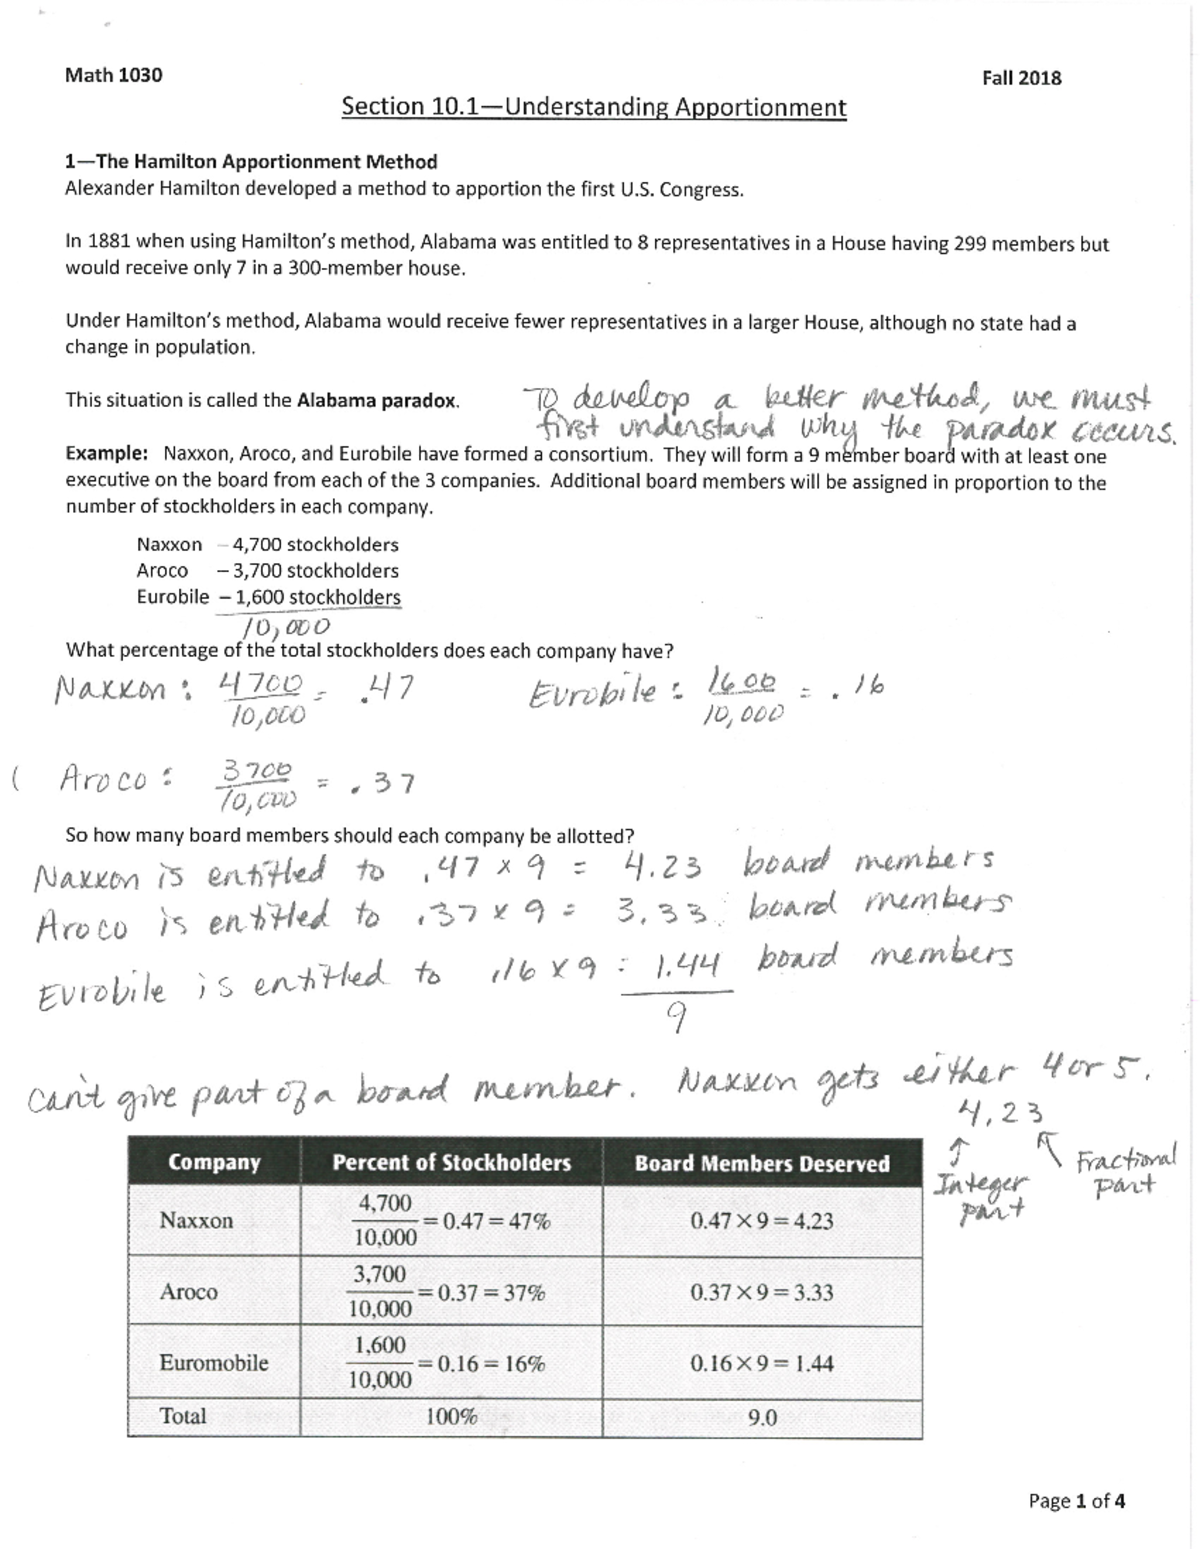 Math 1030 Fall 2018
Section 10.1—Understanding Apportionment
1—The Hamilton Apportionment Method
Alexander Hamilton developed a method to apportion the first U.S. Congress.
In 1881 when using Hamilton's method, Alabama was entitled to 8 representatives in a House having 299 members but
would receive only 7 in a 300-member house.
Under Hamilton's method, Alabama would receive fewer representatives in a larger House, although no state had a
change in population.
This situation is called the Alabama paradox.
To develop a better method, we must
first understand why the paradox occurs.
Example: Naxxon, Aroco, and Eurobile have formed a consortium. They will form a 9 member board with at least one
executive on the board from each of the 3 companies. Additional board members will be assigned in proportion to the
number of stockholders in each company.
Naxxon – 4,700 stockholders
Aroco – 3,700 stockholders
Eurobile – 1,600 stockholders
10,000
What percentage of the total stockholders does each company have?
Naxxon: 4700/10,000 = .47 Eurobile: 1600/10,000 = .16
Aroco: 3700/10,000 = .37
So how many board members should each company be allotted?
Naxxon is entitled to .47 x 9 = 4.23 board members
Aroco is entitled to .37 x 9 = 3.33 board members
Eurobile is entitled to .16 x 9 = 1.44 board members
9
Can't give part of a board member. Naxxon gets either 4 or 5.
4.23
↑ Integer part
↖ Fractional part
Company Percent of Stockholders Board Members Deserved
Naxxon 4,700/10,000 = 0.47 = 47% 0.47 × 9 = 4.23
Aroco 3,700/10,000 = 0.37 = 37% 0.37 × 9 = 3.33
Euromobile 1,600/10,000 = 0.16 = 16% 0.16 × 9 = 1.44
Total 100% 9.0
Page 1 of 4